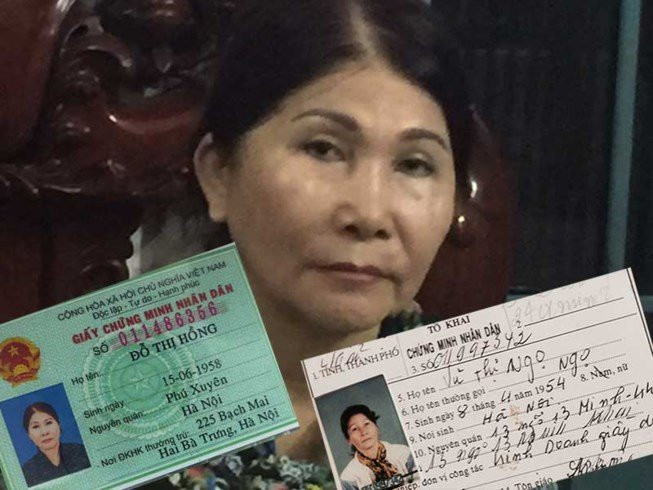 CỘNG HÒA XÃ HỘI CHỦ NGHĨA VIỆT NAM
Độc lập - Tự do - Hạnh phúc
GIẤY CHỨNG MINH NHÂN DÂN
SỐ 011486366
Họ tên: ĐỖ THỊ HỒNG
Sinh ngày: 15-06-1958
Nguyên quán: Phú Xuyên
Hà Nội
Nơi ĐKHK thường trú: 225 Bạch Mai
Hai Bà Trưng, Hà Nội
TỜ KHAI
CHỨNG MINH NHÂN DÂN
1. TỈNH, THÀNH PHỐ
3. SỐ 011997342
5. Họ tên Vũ Thị Ngọ
6. Họ tên thường gọi Ngọ
7. Sinh ngày 8 tháng 4 năm 1954 8. Nam, nữ
9. Nơi sinh Hà Nội
10. Nguyên quán
nghiệp, đơn vị công tác Kinh Doanh giày
Tôn giáo